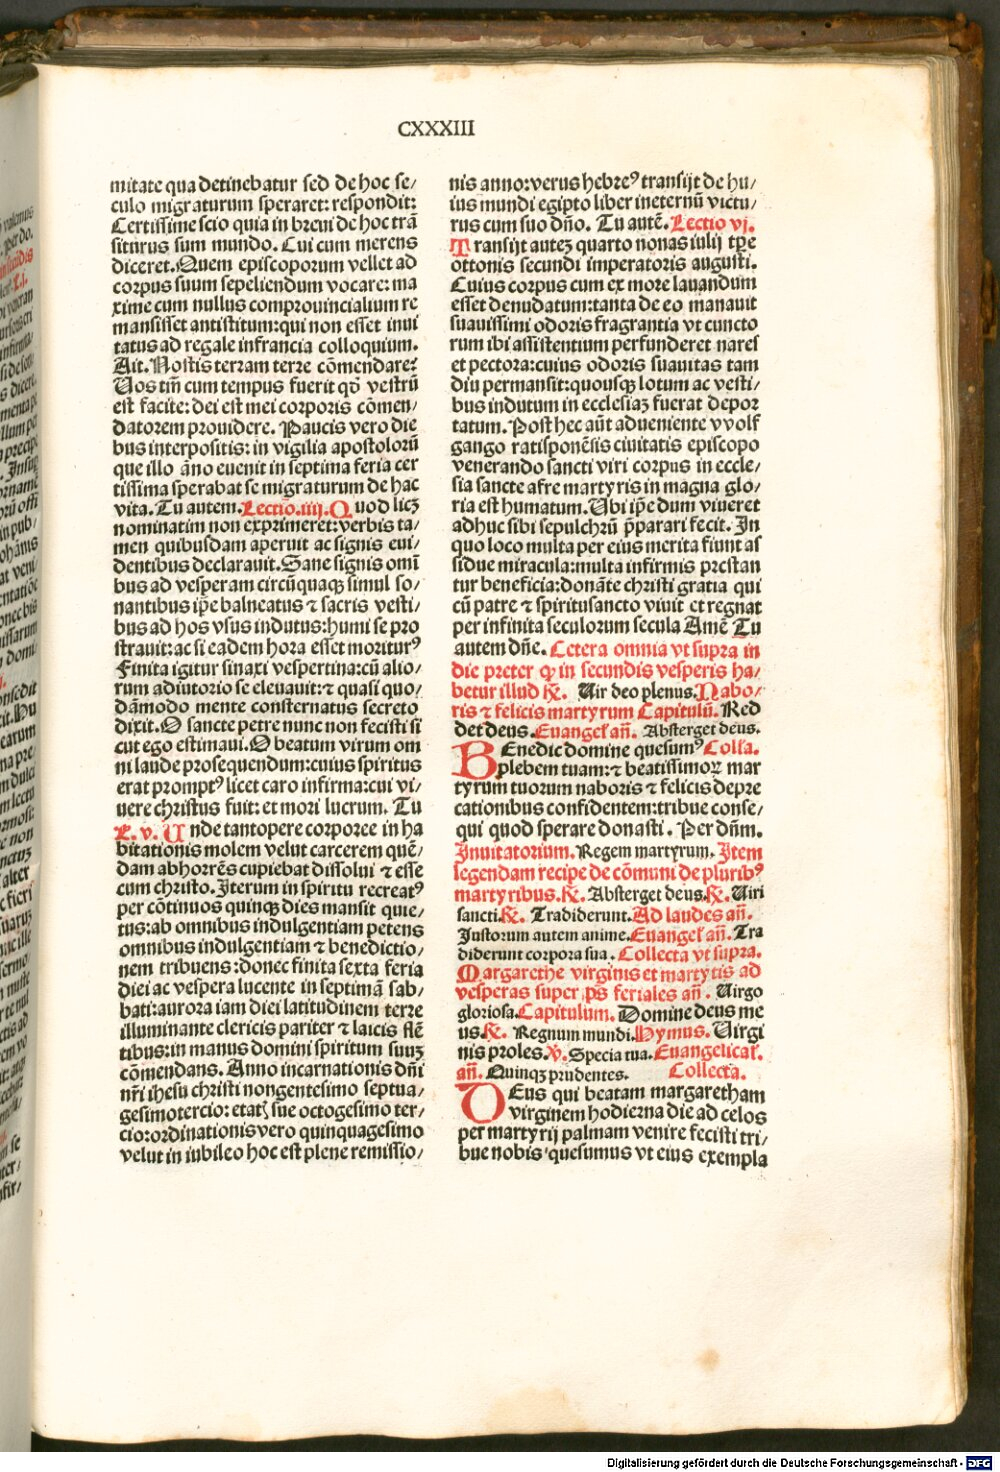 CXXXIII
mitate qua detinebatur sed de hoc se/
culo migraturum speraret: respondit:
Certissime scio quia in breui de hoc trã
siturus sum mundo. Cui cum merens
diceret. Quem episcoporum vellet ad
corpus suum sepeliendum vocare: ma
xime cum nullus comprouincialium re
mansisset antistitum: qui non esset inui
tatus ad regale infrancia colloquium.
Ait. Nostis terram terre cõmendare?
Uos tm̃ cum tempus fuerit qð vestrũ
est facite: dei est mei corporis cõmen/
datorem prouidere. Paucis vero die
bus interpositis: in vigilia apostolorũ
que illo ãno euenit in septima feria cer
tissima sperabat se migraturum de hac
vita. Tu autem. Lectio. iiij. Quod licꝫ
nominatim non exprimeret: verbis ta/
men quibusdam aperuit ac signis eui/
dentibus declarauit. Sane signis omĩ
bus ad vesperam circũquaqꝫ simul so/
nantibus ip̃e balneatus ⁊ sacris vesti/
bus ad hos vsus indutus: humi se pro
strauit: ac si eadem hora esset moriturꝰ
Finita igitur sinaxi vespertina: cũ alio/
rum adiutorio se eleuauit: ⁊ quasi quo/
dãmodo mente consternatus secreto
dixit. O sancte petre nunc non fecisti si
cut ego estimaui. O beatum virum om
ni laude prosequendum: cuius spiritus
erat promptꝰ licet caro infirma: cui vi/
uere christus fuit: et mori lucrum. Tu
L. v. Unde tantopere corporee in ha
bitationis molem velut carcerem quẽ/
dam abhorrẽs cupiebat dissolui ⁊ esse
cum christo. Iterum in spiritu recreatꝰ
per cõtinuos quinqꝫ dies mansit quie/
tus: ab omnibus indulgentiam petens
omnibus indulgentiam ⁊ benedictio/
nem tribuens: donec finita sexta feria
diei ac vespera lucente in septimã sab/
bati: aurora iam diei latitudinem terre
illuminante clericis pariter ⁊ laicis flẽ
tibus: in manus domini spiritum suuꝫ
cõmendans. Anno incarnationis dñi
nr̃i ihesu christi nongentesimo septua/
gesimotercio: etatꝭ sue octogesimo ter/
cio: ordinationis vero quinquagesimo
velut in iubileo hoc est plene remissio/
nis anno: verus hebreꝰ transijt de hu/
ius mundi egipto liber ineternũ victu/
rus cum suo dño. Tu autẽ. Lectio vj.
Transijt auteꝫ quarto nonas iulij tp̃e
ottonis secundi imperatoris augusti.
Cuius corpus cum ex more lauandum
esset denudatum: tanta de eo manauit
suauissimi odoris fragrantia vt cuncto
rum ibi assistentium perfunderet nares
et pectora: cuius odoris suauitas tam
diu permansit: quousqꝫ lotum ac vesti/
bus indutum in ecclesiaꝫ fuerat depor
tatum. Post hec aũt adueniente vvolf
gango ratisponẽsis ciuitatis episcopo
venerando sancti viri corpus in eccle/
sia sancte afre martyris in magna glo/
ria est humatum. Ubi ip̃e dum viueret
adhuc sibi sepulchrũ p̃parari fecit. In
quo loco multa per eius merita fiunt as
sidue miracula: multa infirmis prestan
tur beneficia: donãte christi gratia qui
cũ patre ⁊ spiritusancto viuit et regnat
per infinita seculorum secula Amẽ Tu
autem dñe. Cetera omnia vt supra in
die preter ꝙ in secundis vesperis ha/
betur illud ℟. Uir deo plenus. Nabo/
ris ⁊ felicis martyrum Capitulũ. Red
det deus. Euangel̃ añ. Absterget deus.
BEnedic domine quesumꝰ Coll̃a.
plebem tuam: ⁊ beatissimoꝝ mar
tyrum tuorum naboris ⁊ felicis depre
cationibus confidentem: tribue conse/
qui quod sperare donasti. Per dñm.
Inuitatorium. Regem martyrum. Item
legendam recipe de cõmuni de pluribꝰ
martyribus. ℟. Absterget deus. ℟. Uiri
sancti. ℟. Tradiderunt. Ad laudes añ.
Iustorum autem anime. Euangel̃ añ. Tra
diderunt corpora sua. Collecta vt supra.
Margarethe virginis et martyris ad
vesperas super p̃s feriales añ. Uirgo
gloriosa. Capitulum. Domine deus me
us. ℟. Regnum mundi. Hymus. Uirgi
nis proles. ℣. Specia tua. Euangelical̃.
añ. Quinqꝫ prudentes. Collecta.
DEus qui beatam margaretham
virginem hodierna die ad celos
per martyrij palmam venire fecisti tri/
bue nobis quesumus vt eius exempla
Digitalisierung gefördert durch die Deutsche Forschungsgemeinschaft - DFG